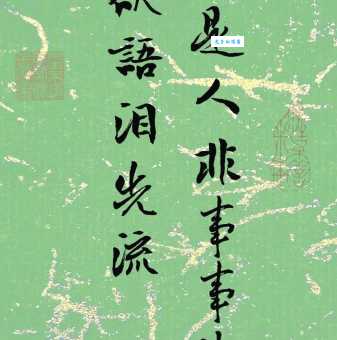 是人非事事
語泪先流